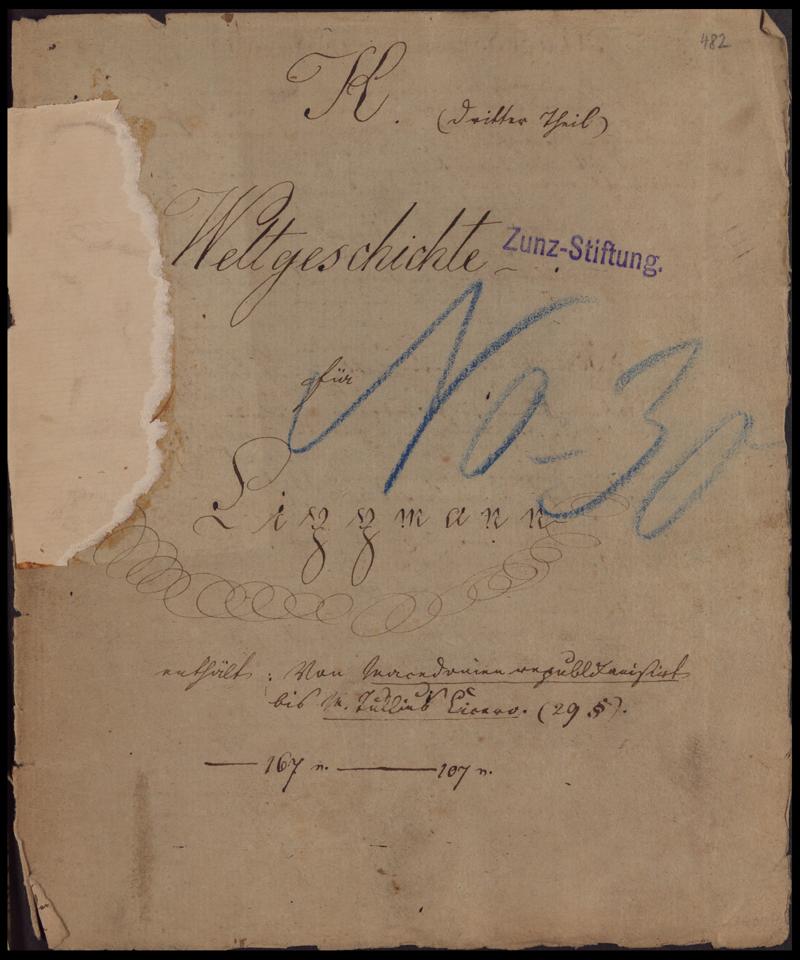 482
K. (dritter Theil)
Weltgeschichte
Zunz-Stiftung.
No 30
für
Lizzmann
enthält: Von Macedonien republikanisirt
bis M. Tullius Cicero. (29 §).
— 167 v. — 107 v.